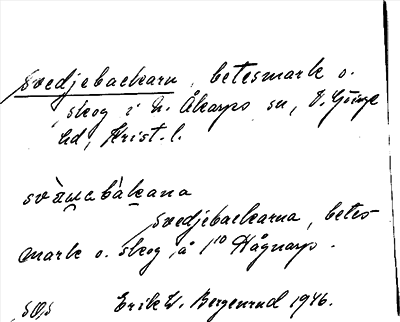 Svedjebackarn, betesmark o.
skog i N. Åkarps sn, V. Göinge
hd, Krist. l.
svàɯabàkana
Svedjebackarna, betes-
mark o. skog å 1¹⁰ Hågnarp.
SOs Erik W. Bergenrud 1946.